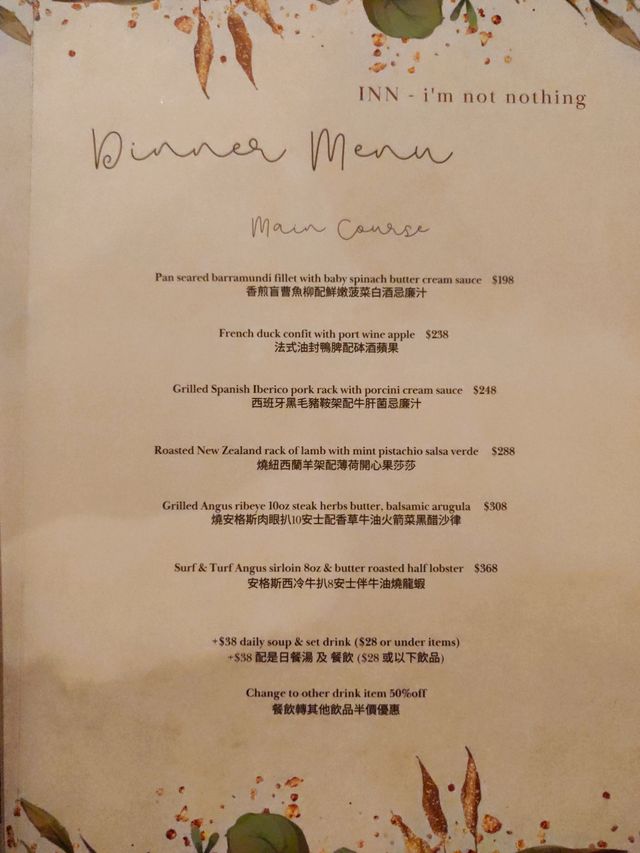 INN - i'm not nothing
Dinner Menu
Main Course
Pan seared barramundi fillet with baby spinach butter cream sauce $198
香煎盲曹魚柳配鮮嫩菠菜白酒忌廉汁
French duck confit with port wine apple $238
法式油封鴨脾配砵酒蘋果
Grilled Spanish Iberico pork rack with porcini cream sauce $248
西班牙黑毛豬鞍架配牛肝菌忌廉汁
Roasted New Zealand rack of lamb with mint pistachio salsa verde $288
燒紐西蘭羊架配薄荷開心果莎莎
Grilled Angus ribeye 10oz steak herbs butter, balsamic arugula $308
燒安格斯肉眼扒10安士配香草牛油火箭菜黑醋沙律
Surf & Turf Angus sirloin 8oz & butter roasted half lobster $368
安格斯西冷牛扒8安士伴牛油燒龍蝦
+$38 daily soup & set drink ($28 or under items)
+$38 配是日餐湯 及 餐飲 ($28 或以下飲品)
Change to other drink item 50%off
餐飲轉其他飲品半價優惠